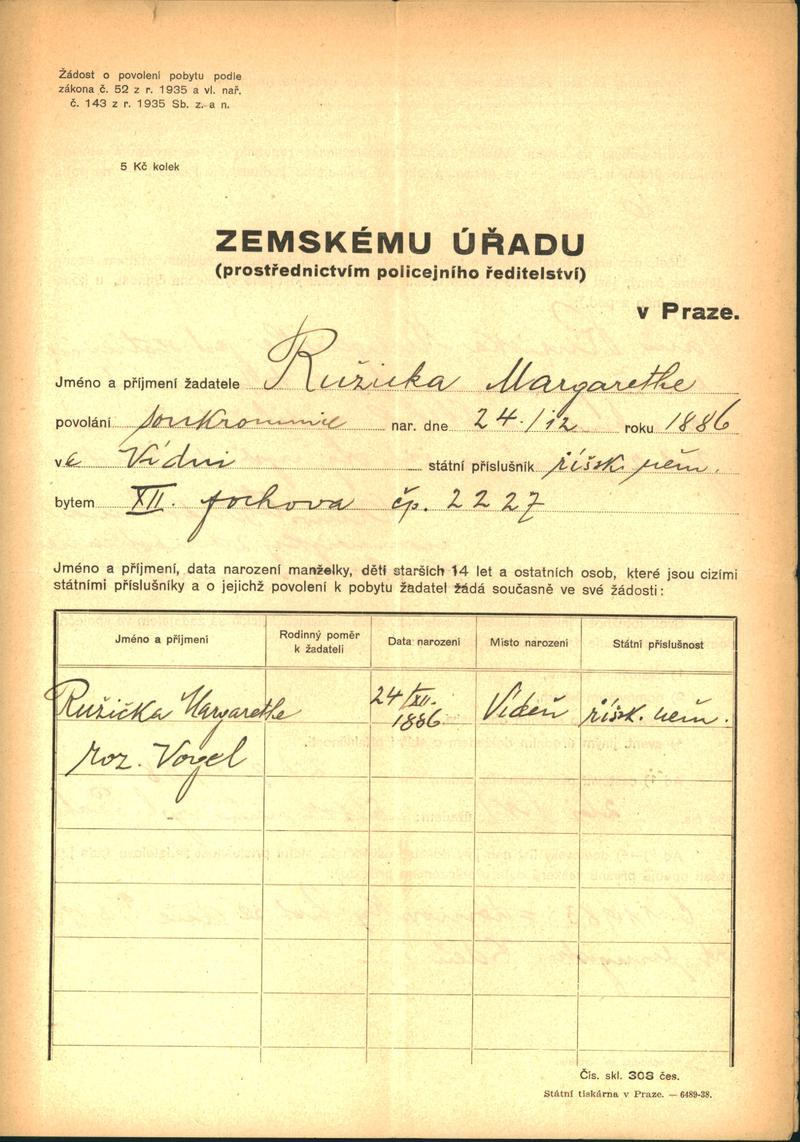 Žádost o povolení pobytu podle
zákona č. 52 z r. 1935 a vl. nař.
č. 143 z r. 1935 Sb. z. a n.
5 Kč kolek
ZEMSKÉMU ÚŘADU
(prostřednictvím policejního ředitelství)
v Praze.
Jméno a příjmení žadateleRužička Margarethe
povolání soukromnice nar. dne 24./12 roku 1886
ve Vídni státní příslušník říšsk. něm.
bytem XII. Fochova čp. 2227
Jméno a příjmení, data narození manželky, dětí starších 14 let a ostatních osob, které jsou cizími
státními příslušníky a o jejichž povolení k pobytu žadatel žádá současně ve své žádosti:
Jméno a příjmení Rodinný poměr k žadateli Data narození Místo narození Státní příslušnost
Ružička Margarethe 24/XII. 1886 Vídeň říšk. něm.
roz. Vogel
Čís. skl. 308 čes.
Státní tiskárna v Praze. — 6489-38.